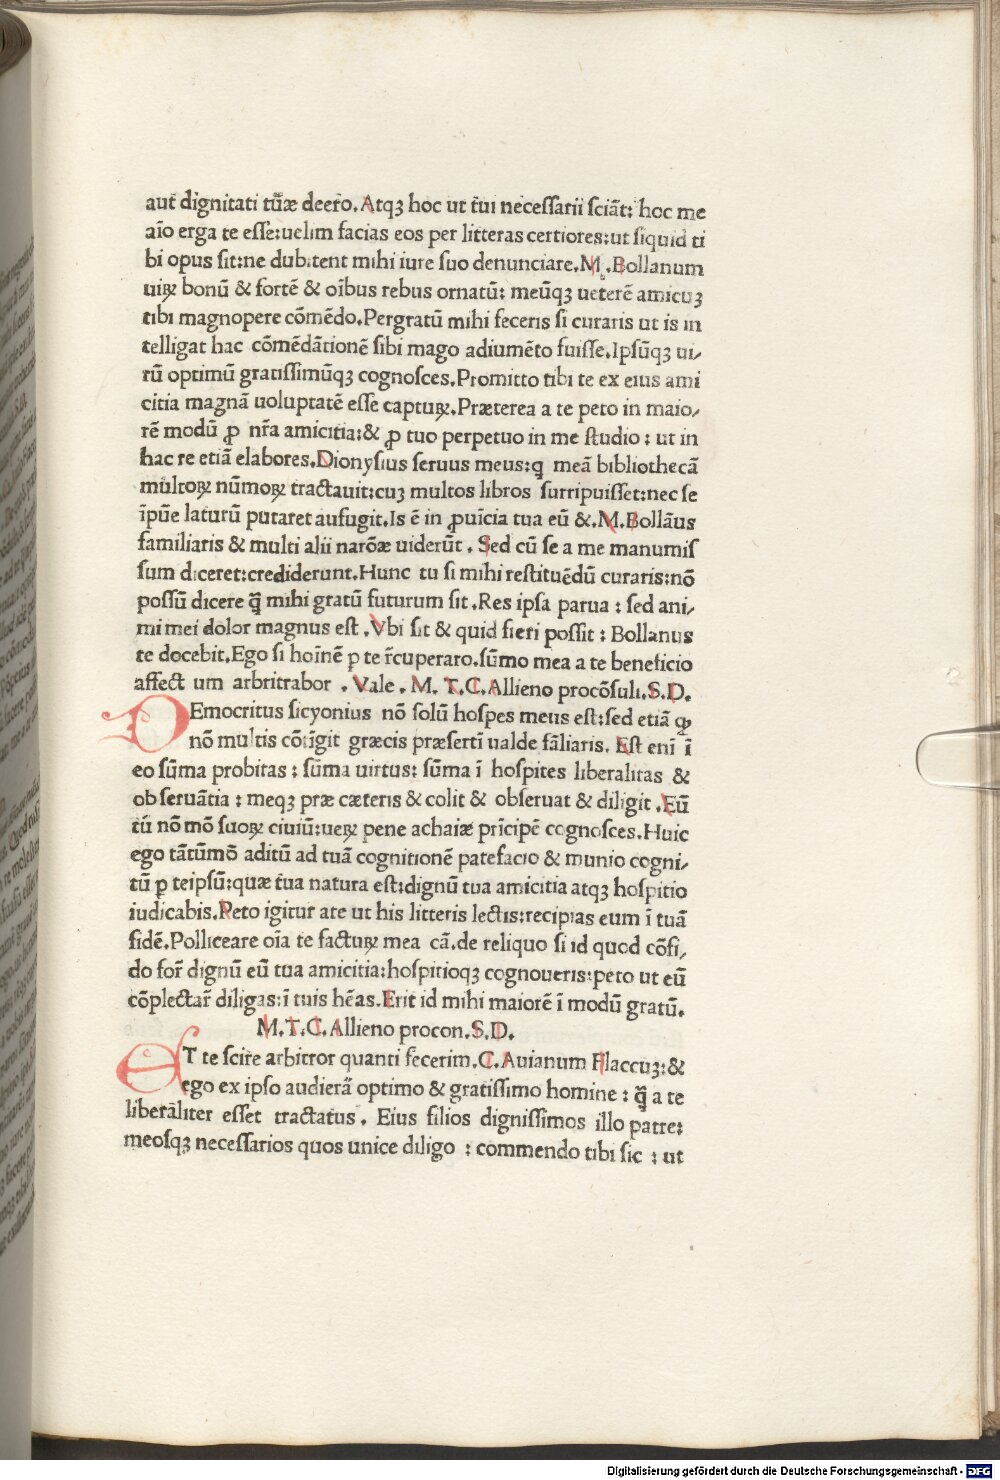 aut dignitati tuæ deero. Atqꝫ hoc ut tui necessarii sciāt: hoc me
aīo erga te esse: uelim facias eos per litteras certiores: ut siquid ti
bi opus sit: ne dubitent mihi iure suo denunciare. M. Bollanum
uiꝝ bonū & fortē & oībus rebus ornatū: meūqꝫ ueterē amicuꝫ
tibi magnopere cōmēdo. Pergratū mihi feceris si curaris ut is in
telligat hac cōmēdātionē sibi mago adiumēto fuisse. Ipsūqꝫ ui/
rū optimū gratissimūqꝫ cognosces. Promitto tibi te ex eius ami
citia magnā uoluptatē esse captuꝝ. Præterea a te peto in maio/
rē modū ꝓ nr̄a amicitia: & ꝓ tuo perpetuo in me studio: ut in
hac re etiā elabores. Dionysius seruus meus: q̄ meā bibliothecā
multoꝝ nūmoꝝ tractauit: cuꝫ multos libros surripuisset: nec se
īpūe laturū putaret aufugit. Is ē in ꝓuīcia tua eū &. M. Bollāus
familiaris & multi alii narōæ uiderūt. Sed cū se a me manumis
sum diceret: crediderunt. Hunc tu si mihi restituēdū curaris: nō
possū dicere q̄ꝫ mihi gratū futurum sit. Res ipsa parua: sed ani/
mi mei dolor magnus est. Vbi sit & quid fieri possit: Bollanus
te docebit. Ego si hoīnē p te r̄cuperaro. sūmo mea a te beneficio
affect um arbritrabor. Vale. M. T. C. Allieno procōsuli. S. D.
DEmocritus sicyonius nō solū hospes meus est: sed etiā ꝙ
nō multis cōtīgit græcis præsertī ualde fāliaris. Est enī ī
eo sūma probitas: sūma uirtus: sūma ī hospites liberalitas &
obseruātia: meqꝫ præ cæteris & colit & obseruat & diligit. Eū
tū nō mō suoꝝ ciuiū: ueꝝ pene achaiæ prīcipē cognosces. Huic
ego tātūmō aditū ad tuā cognitionē patefacio & munio cogni/
tū p teipsū: quæ tua natura est: dignū tua amicitia atqꝫ hospitio
iudicabis. Peto igitur ate ut his litteris lectis: recipias eum ī tuā
fidē. Polliceare oīa te factuꝝ mea cā. de reliquo si id quod cōfi/
do for̄ dignū eū tua amicitia: hospitioqꝫ cognoueris: peto ut eū
cōplectar̄ diligas: ī tuis hēas. Erit id mihi maiorē ī modū gratū.
M. T. C. Allieno procon. S. D.
ET te scire arbitror quanti fecerim. C. Auianum Flaccuꝫ: &
ego ex ipso audierā optimo & gratissimo homine: q̄ꝫ a te
liberāliter esset tractatus. Eius filios dignissimos illo patre:
meosqꝫ necessarios quos unice diligo: commendo tibi sic: ut
Digitalisierung gefördert durch die Deutsche Forschungsgemeinschaft - DFG